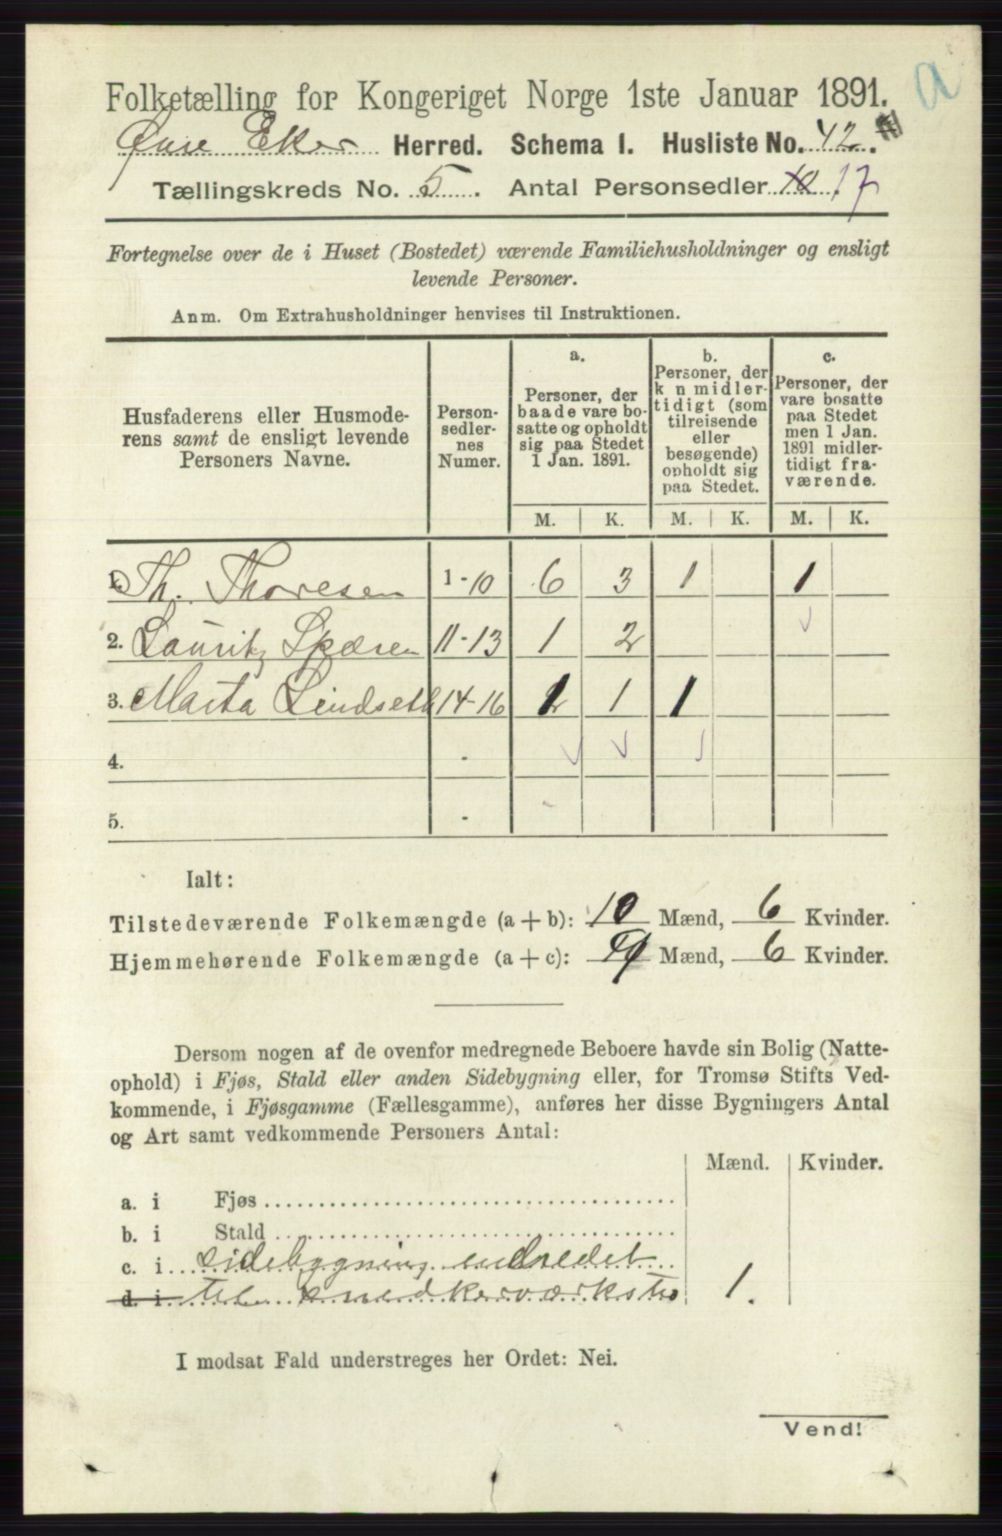 a
Folketælling for Kongeriget Norge 1ste Januar 1891.
Øvre Eker Herred. Schema 1. Husliste No. 42.
Tællingskreds No. 5. Antal Personsedler 10 17
Fortegnelse over de i Huset (Bostedet) værende Familiehusholdninger og ensligt
levende Personer.
Anm. Om Extrahusholdninger henvises til Instruktionen.
Husfaderens eller Husmode-
rens samt de ensligt levende
Personers Navne.
Person-
sedler-
nes
Numer.
a.
Personer, der
baade vare bo-
satte og opholdt
sig paa Stedet
1 Jan. 1891.
b.
Personer, der
k n midler-
tidigt (som
tilreisende
eller
besøgende)
opholdt sig
paa Stedet.
c.
Personer, der
vare bosatte
paa Stedet
men 1 Jan.
1891 midler-
tidigt fra-
værende.
M. K. M. K. M. K.
1. Th. Thoresen 1-10 6 3 1 1
2. Lauritz Spæren 11-13 1 2
3. Marta Lindseth 14-16 2 1 1
4. -
5. -
Ialt:
Tilstedeværende Folkemængde (a + b): 10 Mænd, 6 Kvinder.
Hjemmehørende Folkemængde (a + c): Mænd, 6 Kvinder.
Dersom nogen af de ovenfor medregnede Beboere havde sin Bolig (Natte-
ophold) i Fjøs, Stald eller anden Sidebygning eller, for Tromsø Stifts Ved-
kommende, i Fjøsgamme (Fællesgamme), anføres her disse Bygningers Antal
og Art samt vedkommende Personers Antal:
Mænd. Kvinder.
a. i Fjøs
b. i Stald
c. i sidebygning indredet
d. i til snedkerværksted 1.
I modsat Fald understreges her Ordet: Nei.
Vend!